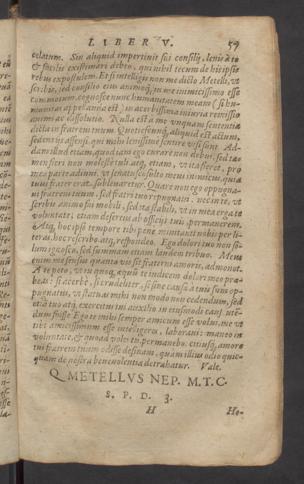 LIBER V. 59
celatum. Sin aliquid impertivit sui consilij, leuis à te
& facilis existimari debeo, qui nihil tecum de his ipsis
rebus expostulem. Et si intelligis non me dicto Metelli, vt
scribis, sed consilio eius animoq; in me inimicissimo esse
commotum, cognosce nunc humanitatem meam (si hu-
manitas appellanda est) in acerbissima iniuria remissio
animi ac dissolutio. Nulla est à me vnquam sententia
dicta in fratrem tuum. Quotiescunq; aliquid est actum,
sedens iis assensi, qui mihi lenissimè sentire visi sunt. Ad-
dam illud etiam, quod iam ego curare non debui, sed ta-
men fieri non molestè tuli, atq; etiam, vt ita fieret, pro
mea parte adiuui, vt senatusconsulto meus inimicus, quia
tuus frater erat, subleuaretur. Quare non ego oppugna-
ui fratrem tuum, sed fratri tuo repugnaui. nec in te, vt
scribis animo sui mobili, sed ita stabili, vt in mea erga te
voluntate, etiam desertus ab officijs tuis, permanerem.
Atq; hoc ipso tempore tibi pene minitanti nobis per lit-
teras, hoc rescribo atq; respondeo. Ego dolori tuo non so-
lum ignosco, sed summam etiam laudem tribuo. Meus
enim me sensus quanta vis sit fraterni amoris, admonet.
A te peto, vt tu quoq; æquū te iudicem dolori meo præ-
beas: si acerbè, si crudeliter, si sine causa à tuis sum op-
pugnatus, vt statuas mihi non modo non cedendum, sed
etiā tuo atq; exercitus tui auxilio in eiusmodi causa vtē-
dum fuisse. Ego te mihi semper amicum esse volui, me vt
tibi amicissimum esse intelligeres, laboraui: maneo in
voluntate, & quoad voles tu, permanebo. citiusq; amore
tui fratrem tuum odisse desinam, quàm illius odio quic-
quam de nostra beneuolentia detraham. Vale.
Q METELLVS NEP. M.T.C.
S. P. D. 3.
H Ho-